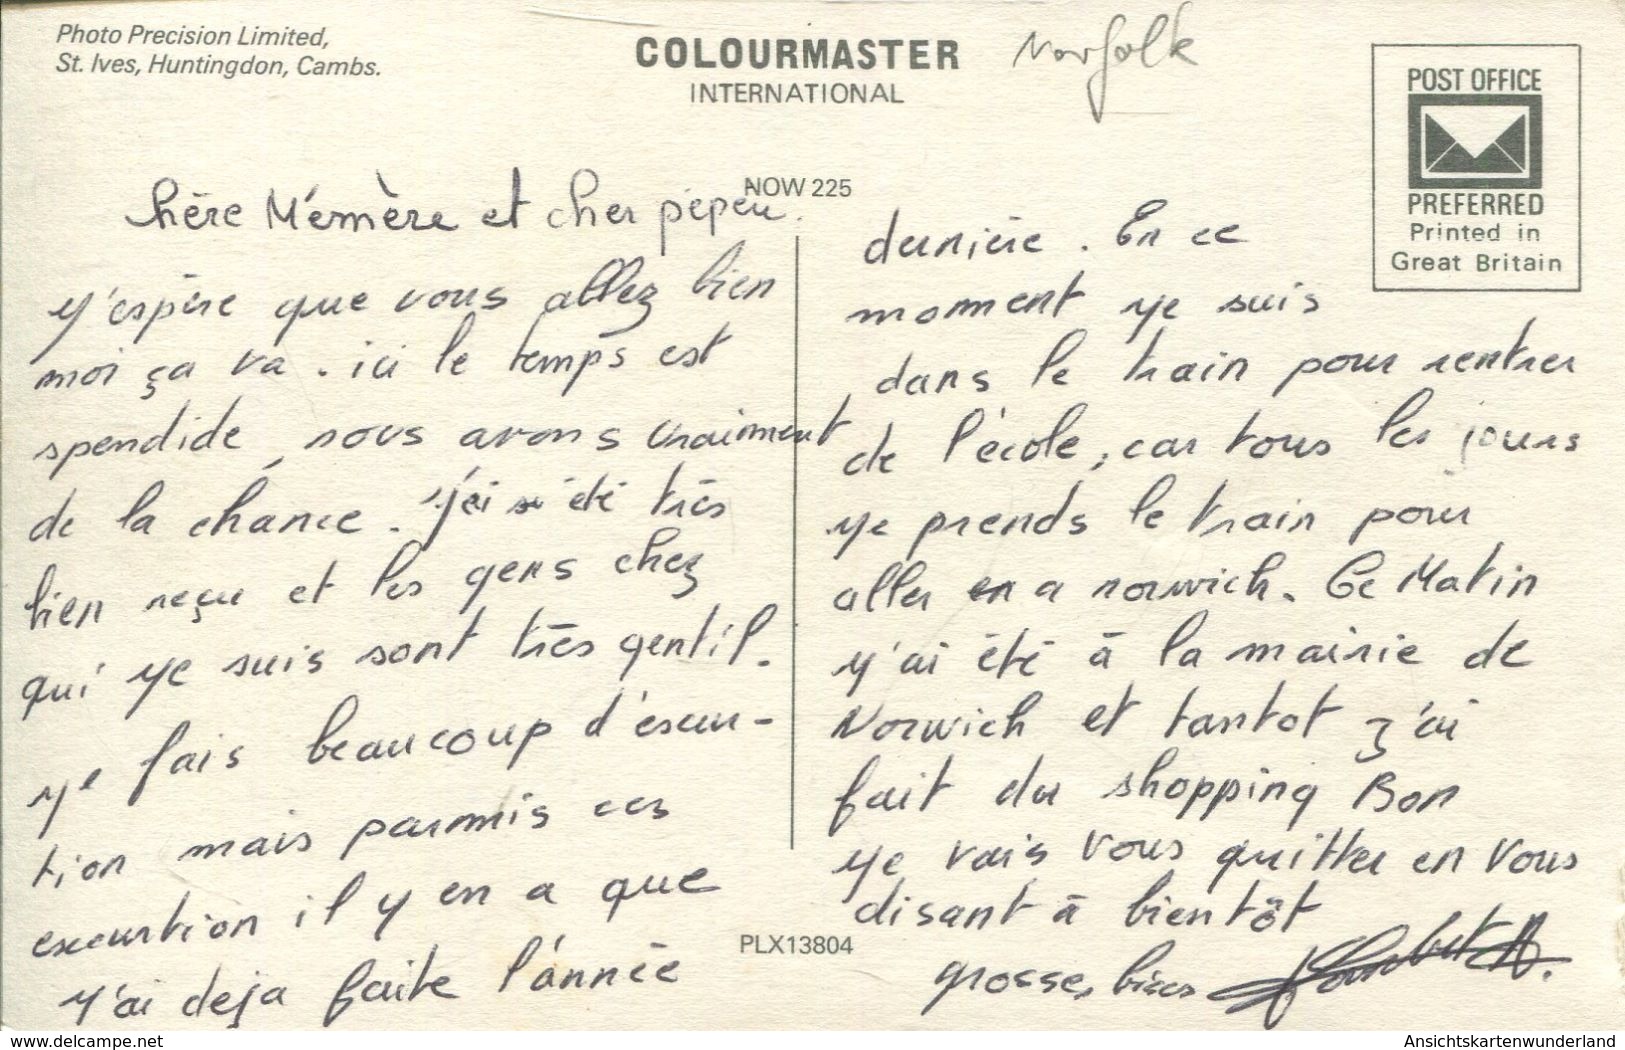 Photo Precision Limited,
St. Ives, Huntingdon, Cambs.
COLOURMASTER
INTERNATIONAL
Norfolk
POST OFFICE
PREFERRED
Printed in
Great Britain
NOW 225
chère Mémère et cher pépéu.
y'espère que vous allez bien
moi ça va. ici le temps est
spendide, nous avons vraiment
de la chance. j'ai été très
bien reçu et les gens chez
qui ye suis sont très gentil.
ye fais beaucoup d'éxcur-
tion mais parmis ces
excurtion il y en a que
y'ai deja faite l'année
dernière. En ce
moment ye suis
dans le train pour rentrer
de l'école, car tous les jours
ye prends le train pour
aller en a norwich. Ce Matin
y'ai été à la mairie de
Norwich et tantot j'ai
fait du shopping Bon
ye vais vous quitter en vous
disant à bientôt
grosse, bises
PLX13804
www.delcampe.net
AnsichtskartenwunderIand